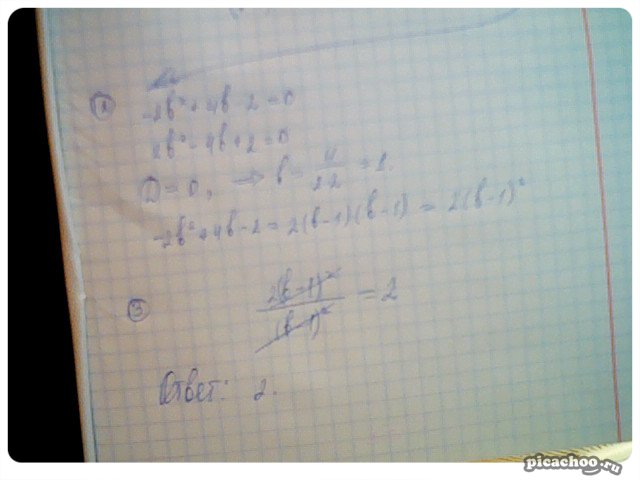 ② -2b² + 4b - 2 = 0
2b² - 4b + 2 = 0
D = 0, → b = 4/2·2 = 1.
-2b² + 4b - 2 = 2(b-1)(b-1) = 2(b-1)²
③ 2(b-1)²/(b-1)² = 2
Ответ: 2.
picachoo.ru